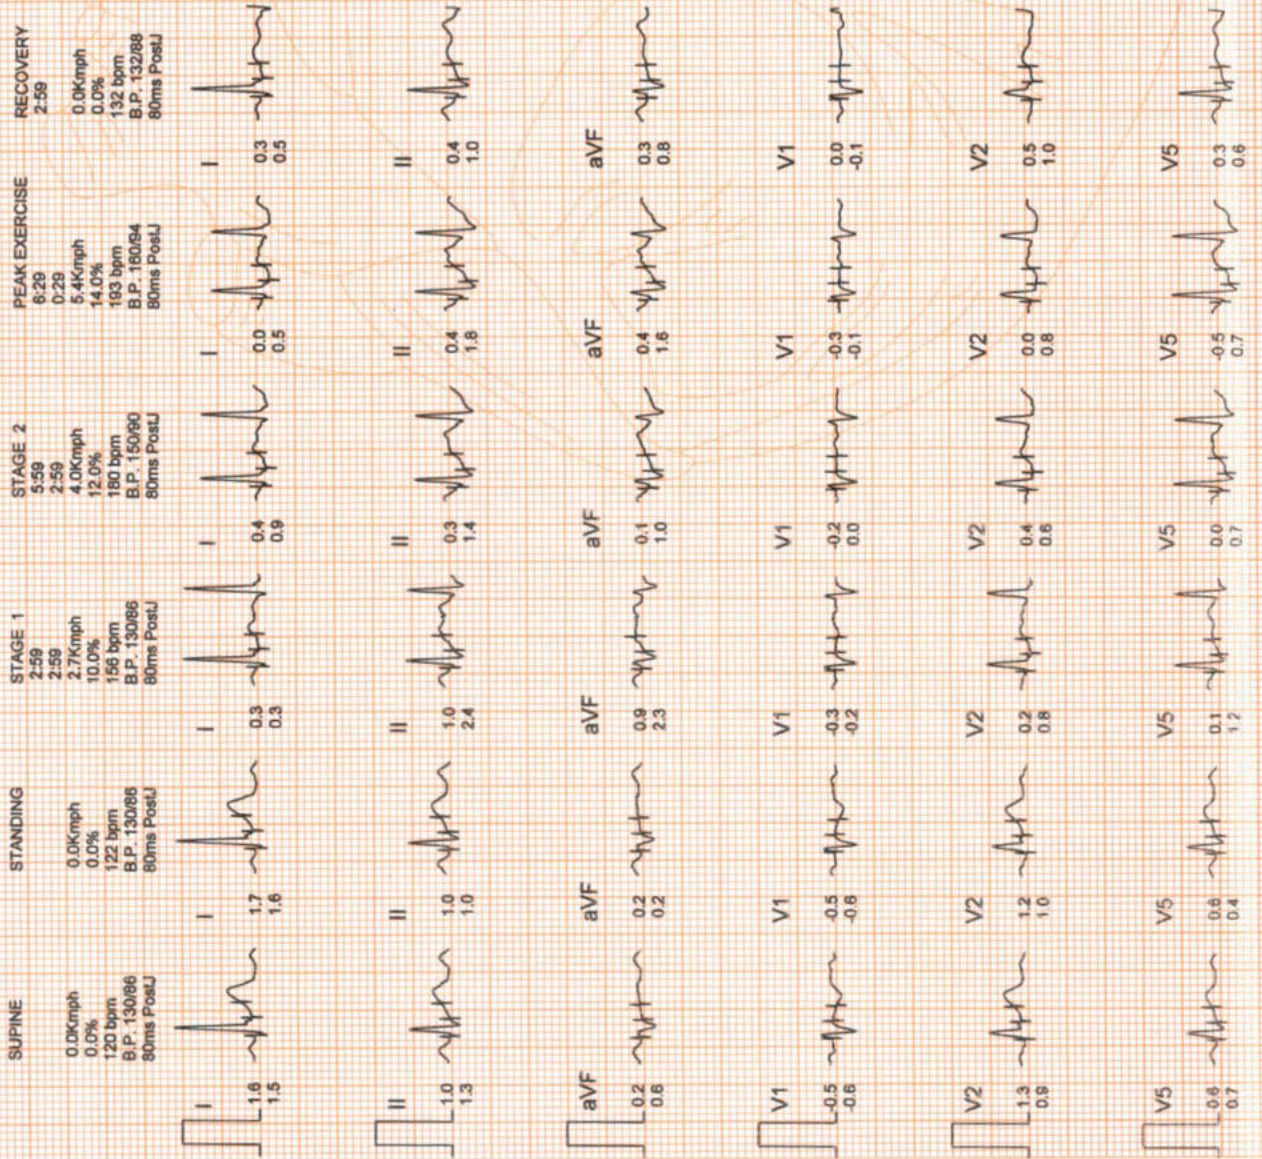 SUPINE
0.0Kmph
0.0%
120 bpm
B.P. 130/86
80ms PostJ
STANDING
0.0Kmph
0.0%
122 bpm
B.P. 130/86
80ms PostJ
STAGE 1
2:59
2:59
2.7Kmph
10.0%
156 bpm
B.P. 130/86
80ms PostJ
STAGE 2
5:59
2:59
4.0Kmph
12.0%
180 bpm
B.P. 150/90
80ms PostJ
PEAK EXERCISE
6:29
0:29
5.4Kmph
14.0%
193 bpm
B.P. 160/94
80ms PostJ
RECOVERY
2:59
0.0Kmph
0.0%
132 bpm
B.P. 132/88
80ms PostJ
I
1.6
1.5
I
1.7
1.6
I
0.3
0.3
I
0.4
0.9
I
0.0
0.5
I
0.3
0.5
II
1.0
1.3
II
1.0
1.0
II
1.0
2.4
II
0.3
1.4
II
0.4
1.8
II
0.4
1.0
aVF
0.2
0.6
aVF
0.2
0.2
aVF
0.9
2.3
aVF
0.1
1.0
aVF
0.4
1.6
aVF
0.3
0.8
V1
-0.5
-0.6
V1
-0.5
-0.6
V1
-0.3
-0.2
V1
-0.2
0.0
V1
-0.3
-0.1
V1
0.0
-0.1
V2
1.3
0.9
V2
1.2
1.0
V2
0.2
0.8
V2
0.4
0.6
V2
0.0
0.8
V2
0.5
1.0
V5
0.6
0.7
V5
0.6
0.4
V5
0.1
1.2
V5
0.0
0.7
V5
-0.5
0.7
V5
0.3
0.6